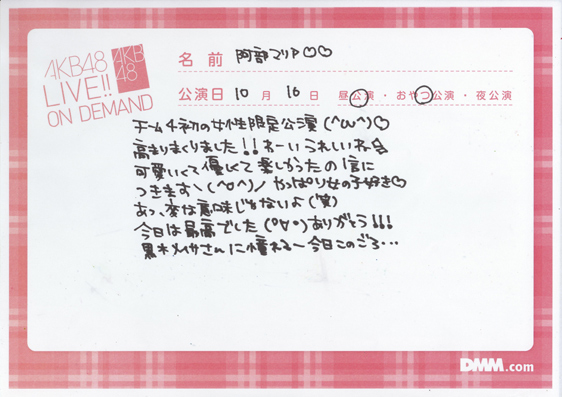 AKB48
LIVE!!
ON DEMAND
AKB
48
名前 阿部マリア♡♡
公演日 10月16日 昼公演・おやつ公演・夜公演
チーム4初の女性限定公演(^ω^)♡
高まりまくりました!!わーいうれしいわ☆
可愛いくて優しくて楽しかったの信に
つきますヽ(^o^)ノ やっぱり女の子好き♡
あっ、変な意味じゃないよ(笑)
今日は最高でした(°∀°)ありがとう!!!
黒木メイサさんに憧れる〜今日このごろ…
DMM.com